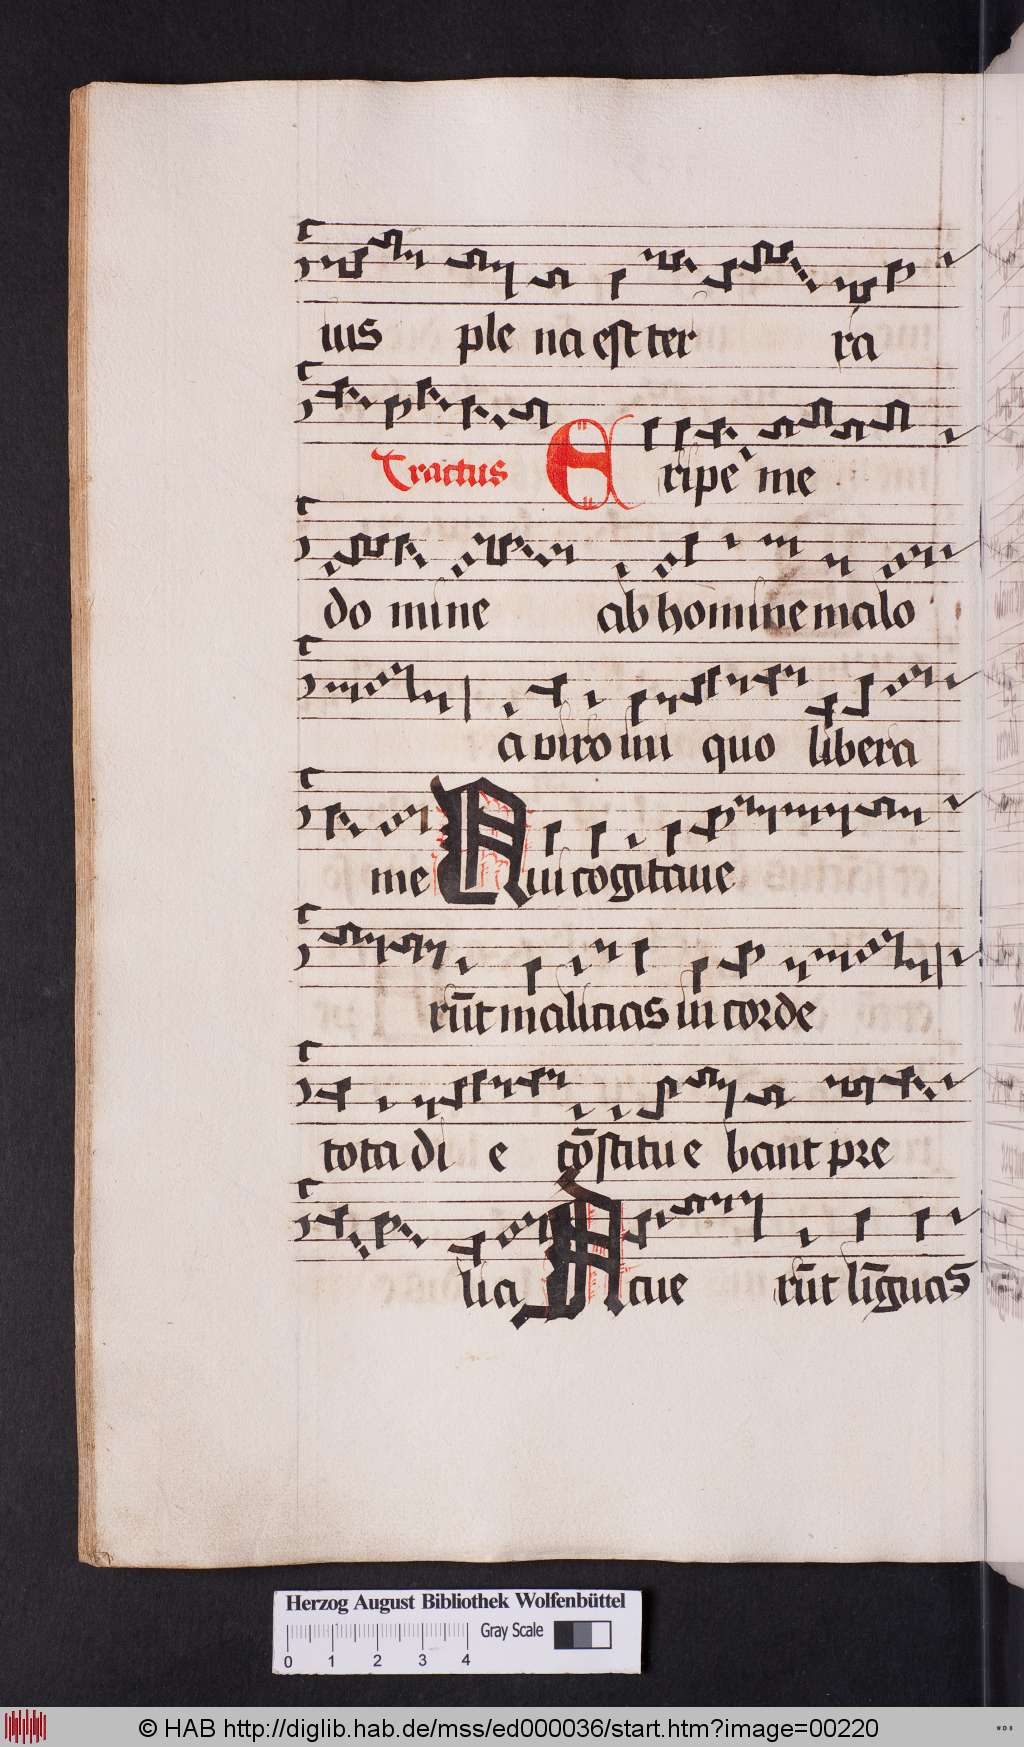 ius ple na est ter ra
Tractus Eripe me
do mine ab homine malo
a viro ini quo libera
me Qui cogitaue
rūt malicias in corde
tota di e cōstitue bant pre
lia Acue rūt līguas
Herzog August Bibliothek Wolfenbüttel
Gray Scale
0 1 2 3 4
© HAB http://diglib.hab.de/mss/ed000036/start.htm?image=00220